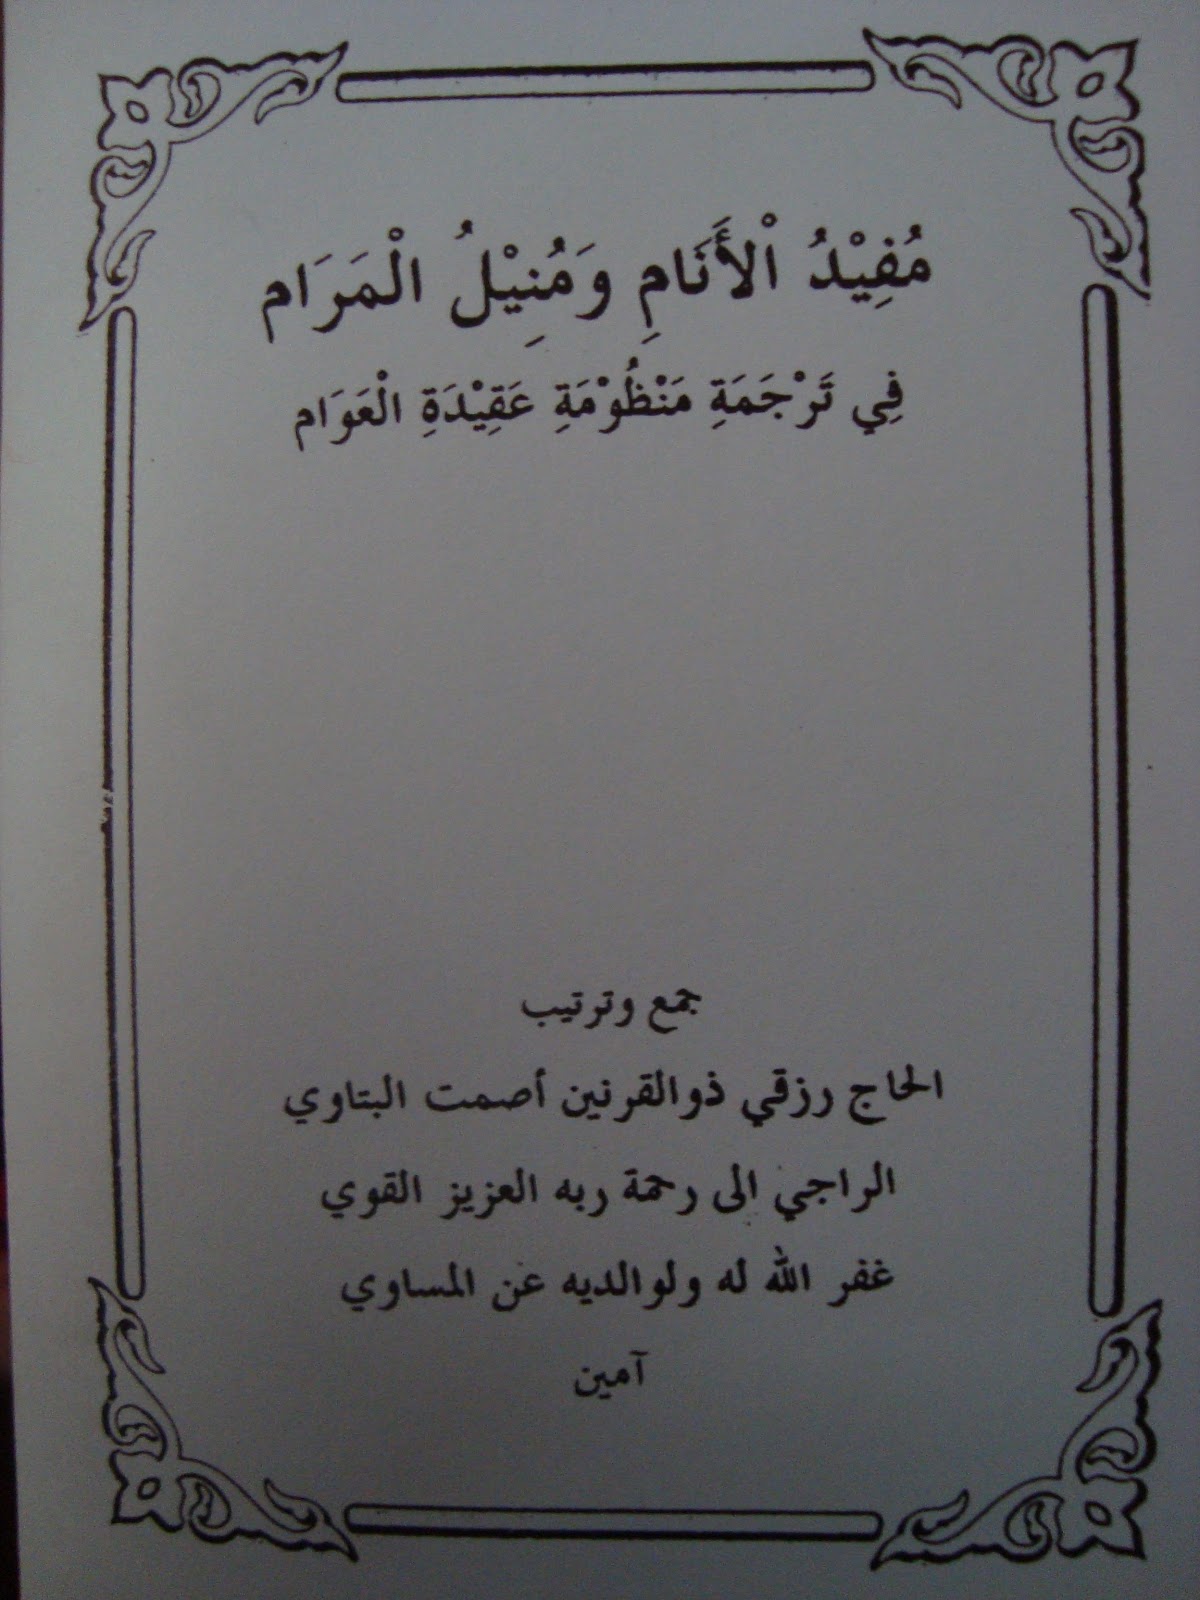 مُفِيْدُ الْأَنَامِ وَمُنِيْلُ الْمَرَام
فِي تَرْجَمَةِ مَنْظُوْمَةِ عَقِيْدَةِ الْعَوَام
جمع وترتيب
الحاج رزقي ذوالقرنين أصمت البتاوي
الراجي الى رحمة ربه العزيز القوي
غفر الله له ولوالديه عن المساوي
آمين